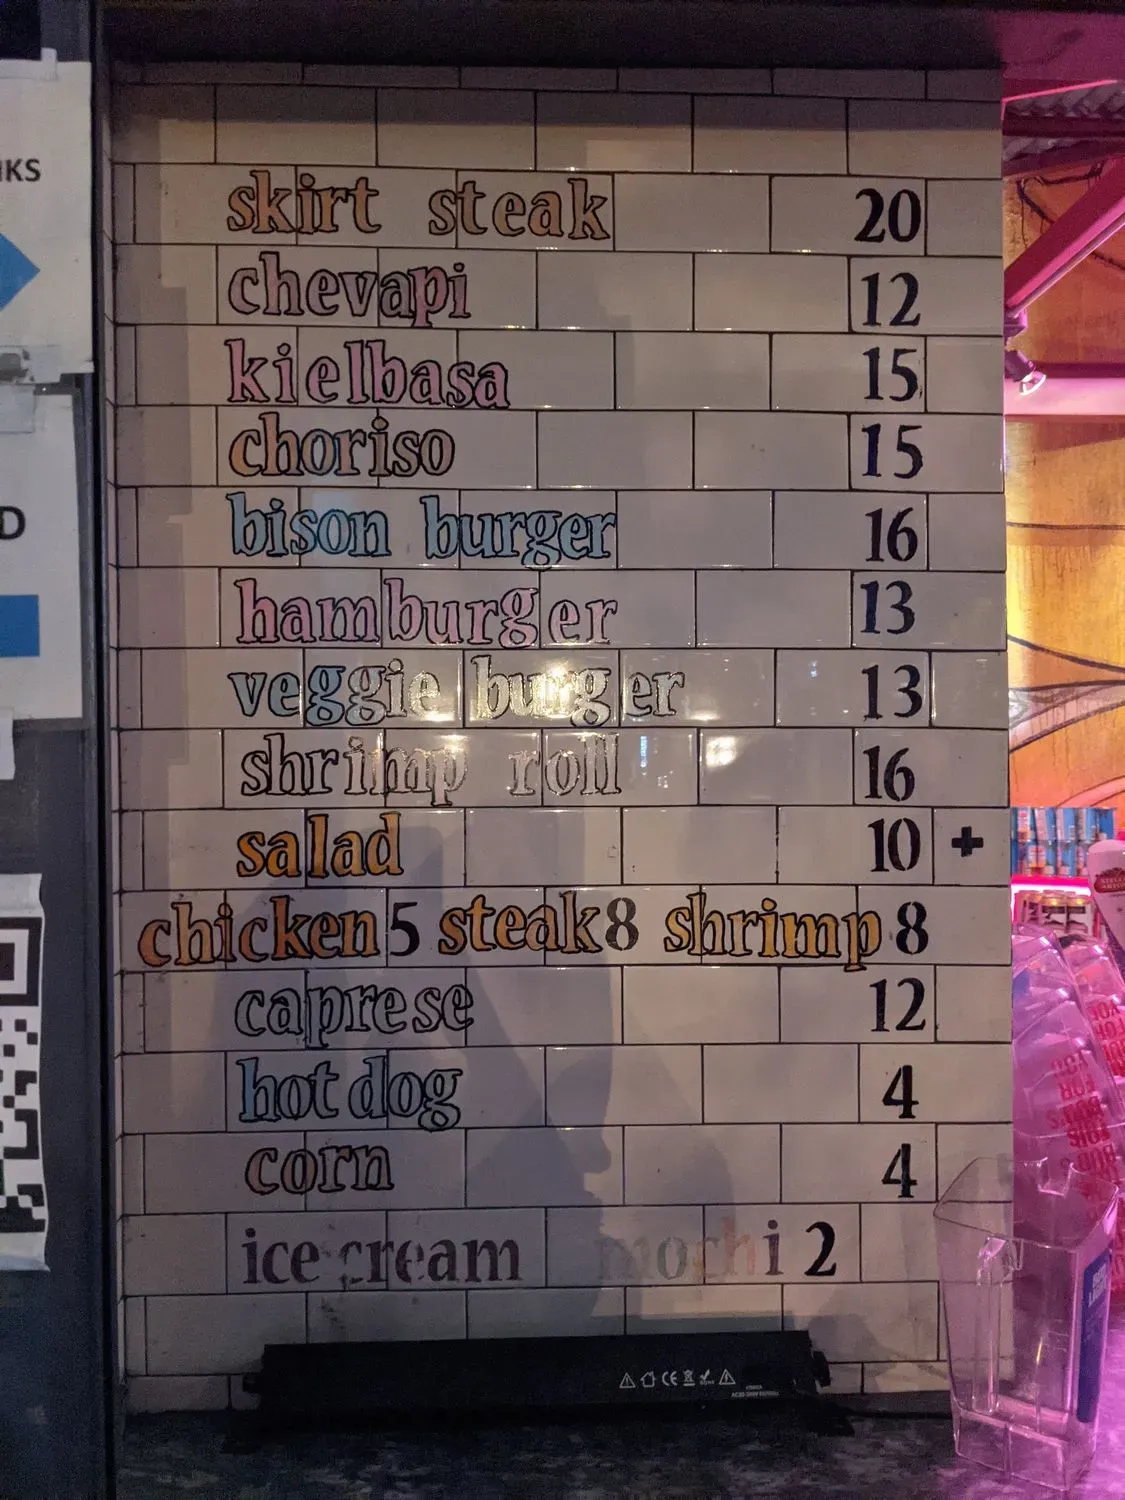 skirt steak 20
chevapi 12
kielbasa 15
choriso 15
bison burger 16
hamburger 13
veggie burger 13
shrimp roll 16
salad 10 +
chicken 5 steak 8 shrimp 8
caprese 12
hot dog 4
corn 4
ice cream mochi 2
D
CE